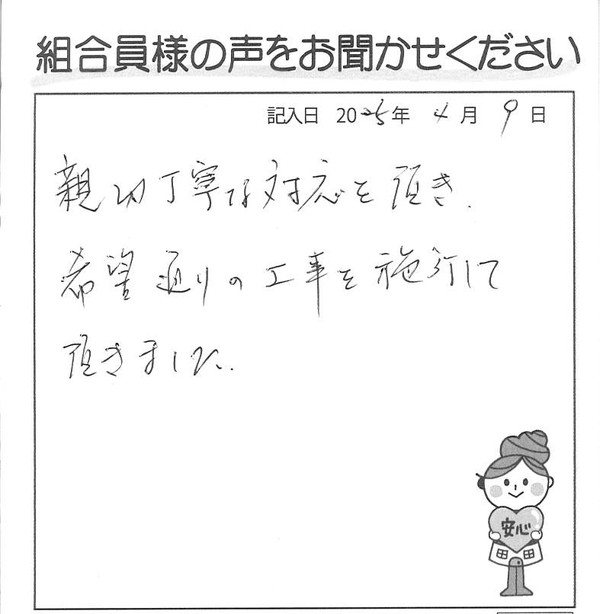 組合員様の声をお聞かせください
記入日 2025年 4月 9日
親切丁寧な対応を頂き、
希望通りの工事を施行して
頂きました。
安心